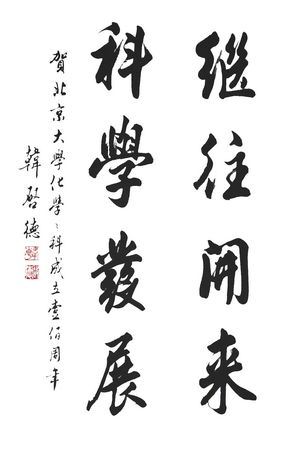 继往開来
科學發展
賀北京大學化學々科成立壹佰周年
韓啓德